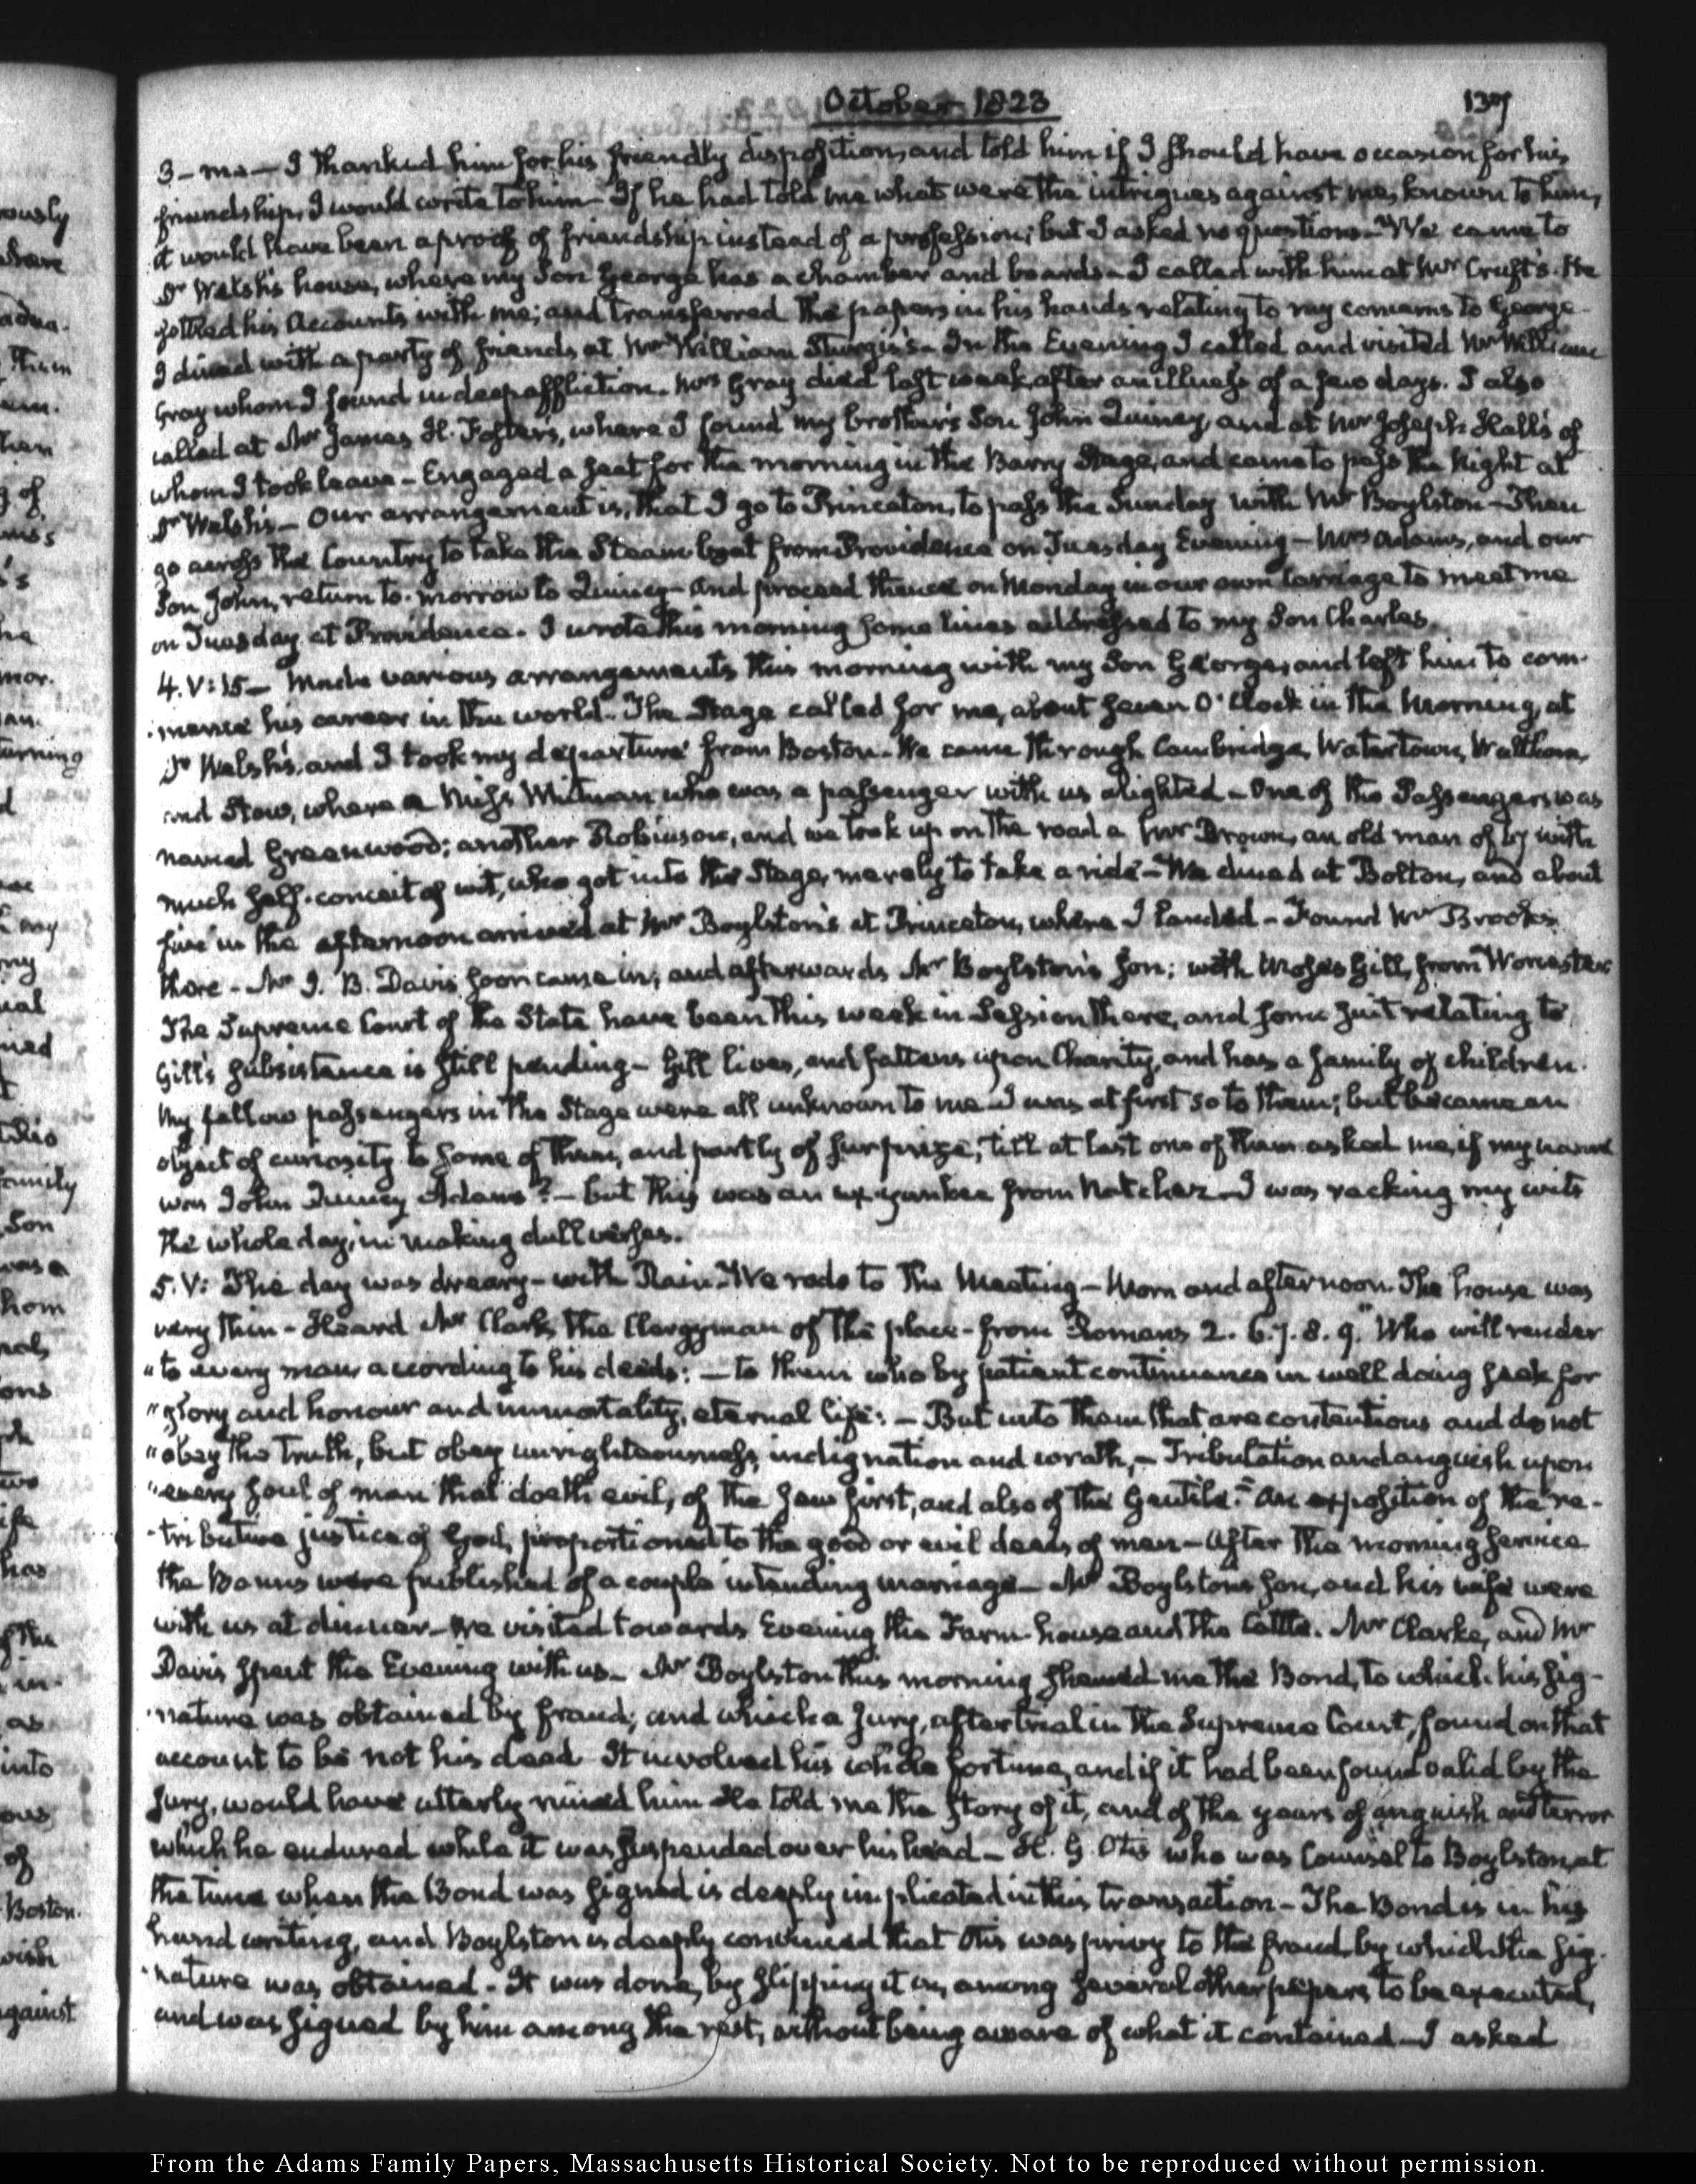 October 1823
137
3 - me - I thanked him for his friendly disposition, and told him if I should have occasion for his
friendship, I would write to him - If he had told me what were the intrigues against me, known to him,
it would have been a proof of friendship instead of a profession; but I asked no questions - We came to
Dr Welsh's house, where my Son George has a chamber and boards - I called with him at Mr Cruft's. He
settled his Accounts with me; and transferred the papers in his hands relating to my concerns to George -
I dined with a party of friends at Mr William Sturgis's - In the Evening I called and visited Mr William
Gray whom I found in deep affliction. Mrs Gray died last week, after an illness of a few days. I also
called at Mr James H. Foster's, where I found my brother's Son John Quincy, and at Mr Joseph Hall's of
whom I took leave - Engaged a seat for the morning in the Barry Stage, and came to pass the Night at
Dr Welsh's - Our arrangement is, that I go to Princeton, to pass the Sunday with Mr Boylston - Then
go across the Country to take the Steam boat from Providence on Tuesday Evening - Mrs Adams, and our
Son John, return to-morrow to Quincy - and proceed thence on Monday in our own Carriage to meet me
on Tuesday at Providence. I wrote this morning some lines addressed to my Son Charles.
4. V:15 - Made various arrangements this morning with my Son George, and left him to com-
-mence his career in the world. The Stage called for me, about seven O'Clock in the Morning, at
Dr Welsh's, and I took my departure from Boston - We came through Cambridge, Watertown, Waltham,
and Stow, where a Miss Whitman who was a passenger with us alighted - One of the Passengers was
named Greenwood; another Robinson, and we took up on the road a Mr Brown, an old man of 67 with
much self-conceit of wit, who got into the Stage, merely to take a ride - We dined at Bolton, and about
five in the afternoon arrived at Mr Boylston's at Princeton, where I landed - Found Mr Brooks
there - Mr J. B. Davis soon came in; and afterwards Mr Boylston's Son; with Moses Gill, from Worcester
The Supreme Court of the State have been this week in Session there, and some suit relating to
Gill's subsistence is still pending - Gill lives, and fattens upon Charity, and has a family of children.
My fellow passengers in the Stage were all unknown to me I was at first so to them; but became an
object of curiosity to some of them, and partly of surprize; till at last one of them asked me, if my name
was John Quincy Adams? - but this was an ex-yankee from Natchez - I was racking my wits
the whole day, in making dull verses.
5. V: The day was dreary - with Rain - We rode to the Meeting - Morn and afternoon. The house was
very thin - Heard Mr Clark, the Clergyman of the place - from Romans 2. 6. 7. 8. 9. "Who will render
"to every man according to his deeds: - to them who by patient continuance in well doing seek for
"glory and honour and immortality, eternal life: - But unto them that are contentious and do not
"obey the truth, but obey unrighteousness, indignation and wrath, - Tribulation and anguish upon
"every soul of man that doeth evil, of the Jew first, and also of the Gentile." An exposition of the re-
-tributive justice of God, proportioned to the good or evil deeds of men - After the morning service
the Banns were published of a couple intending marriage - Mr Boylston's Son, and his wife were
with us at dinner - We visited towards Evening the Farm-house and the Cattle. Mr Clarke, and Mr
Davis spent the Evening with us - Mr Boylston this morning shewed me the Bond, to which his sig-
-nature was obtained by fraud; and which a Jury, after trial in the Supreme Court, found on that
account to be not his deed. It involved his whole fortune, and if it had been found valid by the
Jury, would have utterly ruined him He told me the story of it, and of the years of anguish and terror
which he endured while it was suspended over his head - H. G. Otis who was Counsel to Boylston, at
the time when the Bond was signed is deeply implicated in this transaction - The Bond is in his
hand writing, and Boylston is deeply convinced that Otis was privy to the fraud by which the sig-
-nature was obtained. It was done, by slipping it in, among several other papers, to be executed,
and was signed by him among the rest, without being aware of what it contained - I asked
From the Adams Family Papers, Massachusetts Historical Society. Not to be reproduced without permission.